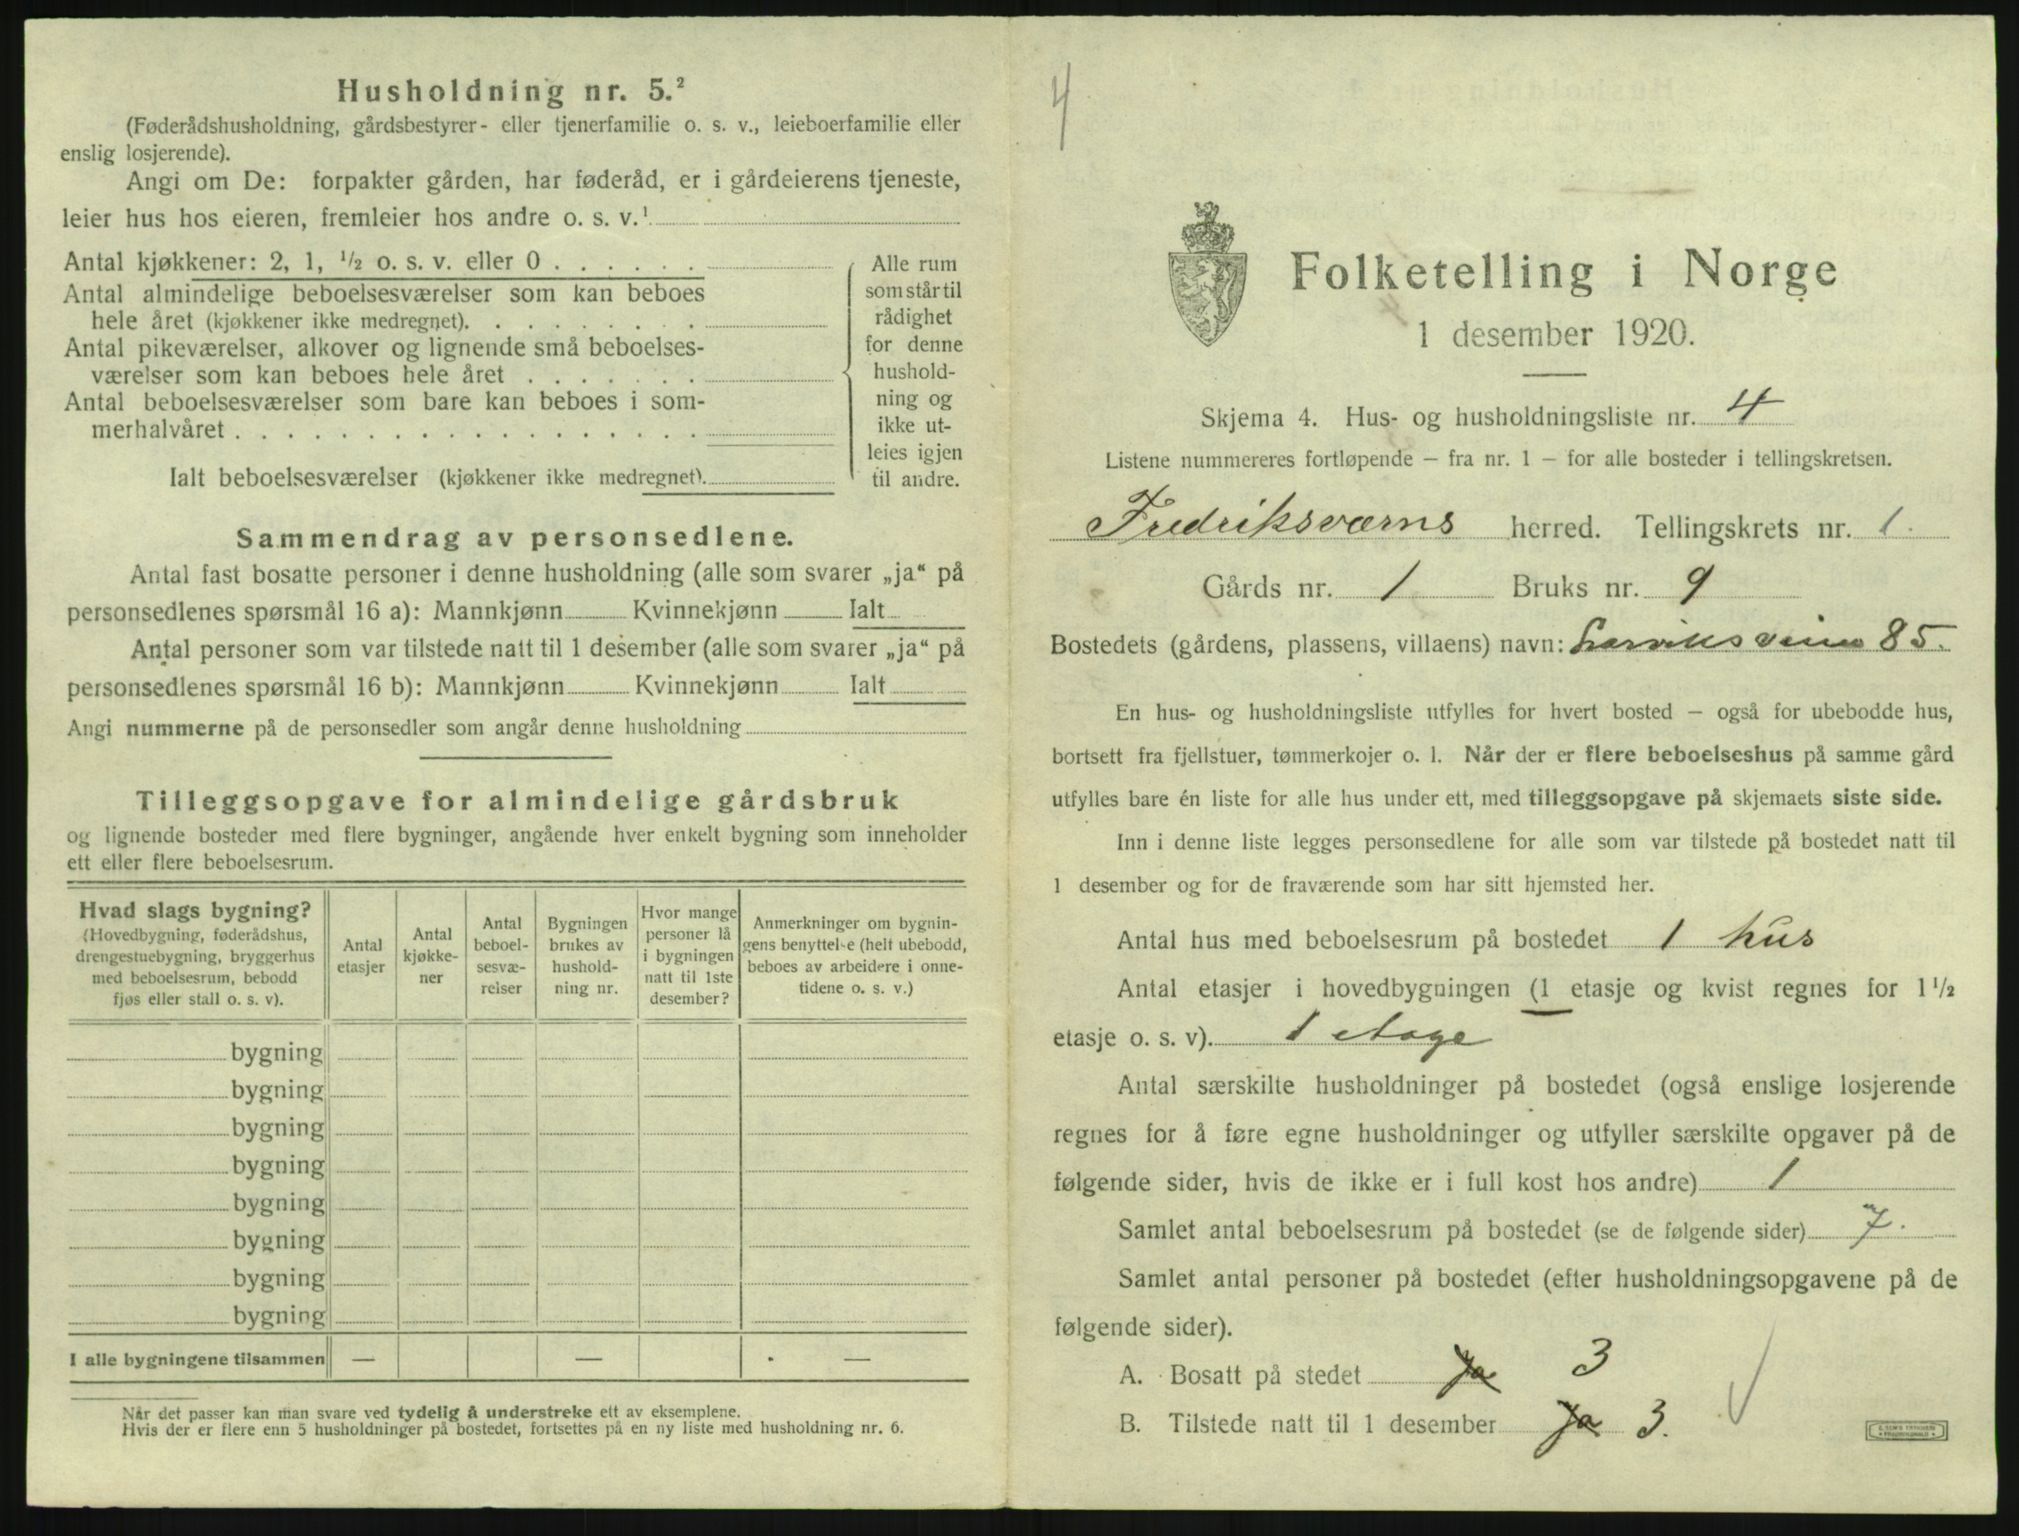 Husholdning nr. 5.²
(Føderådshusholdning, gårdsbestyrer- eller tjenerfamilie o. s. v., leieboerfamilie eller
enslig losjerende).
Angi om De: forpakter gården, har føderåd, er i gårdeierens tjeneste,
leier hus hos eieren, fremleier hos andre o. s. v.¹
Antal kjøkkener: 2, 1, ½ o. s. v. eller 0 . . . . . .
Antal almindelige beboelsesværelser som kan beboes
hele året (kjøkkener ikke medregnet). . . . . . . . .
Antal pikeværelser, alkover og lignende små beboelses-
værelser som kan beboes hele året . . . . . . .
Antal beboelsesværelser som bare kan beboes i som-
merhalvåret . . . . . . . . . . . . . . . . . .
Ialt beboelsesværelser (kjøkkener ikke medregnet).
Alle rum
som står til
rådighet
for denne
hushold-
ning og
ikke ut-
leies igjen
til andre.
Sammendrag av personsedlene.
Antal fast bosatte personer i denne husholdning (alle som svarer „ja“ på
personsedlenes spørsmål 16 a): Mannkjønn Kvinnekjønn Ialt
Antal personer som var tilstede natt til 1 desember (alle som svarer „ja“ på
personsedlenes spørsmål 16 b): Mannkjønn Kvinnekjønn Ialt
Angi nummerne på de personsedler som angår denne husholdning
Tilleggsopgave for almindelige gårdsbruk
og lignende bosteder med flere bygninger, angående hver enkelt bygning som inneholder
ett eller flere beboelsesrum.
Hvad slags bygning?
(Hovedbygning, føderådshus,
drengestuebygning, bryggerhus
med beboelsesrum, bebodd
fjøs eller stall o. s. v).
Antal
etasjer
Antal
kjøkke-
ner
Antal
beboel-
sesvæ-
relser
Bygningen
brukes av
hushold-
ning nr.
Hvor mange
personer lå
i bygningen
natt til 1ste
desember?
Anmerkninger om bygnin-
gens benyttelse (helt ubebodd,
beboes av arbeidere i onne-
tidene o. s. v.)
bygning
bygning
bygning
bygning
bygning
bygning
bygning
bygning
I alle bygningene tilsammen — — —
Når det passer kan man svare ved tydelig å understreke ett av eksemplene.
Hvis der er flere enn 5 husholdninger på bostedet, fortsettes på en ny liste med husholdning nr. 6.
4
Folketelling i Norge
1 desember 1920.
Skjema 4. Hus- og husholdningsliste nr. 4
Listene nummereres fortløpende — fra nr. 1 — for alle bosteder i tellingskretsen.
Fredriksværns herred. Tellingskrets nr. 1.
Gårds nr. 1 Bruks nr. 9
Bostedets (gårdens, plassens, villaens) navn: Larviksveien 85.
En hus- og husholdningsliste utfylles for hvert bosted — også for ubebodde hus,
bortsett fra fjellstuer, tømmerkojer o. l. Når der er flere beboelseshus på samme gård
utfylles bare én liste for alle hus under ett, med tilleggsopgave på skjemaets siste side.
Inn i denne liste legges personsedlene for alle som var tilstede på bostedet natt til
1 desember og for de fraværende som har sitt hjemsted her.
Antal hus med beboelsesrum på bostedet 1 hus
Antal etasjer i hovedbygningen (1 etasje og kvist regnes for 1 ½
etasje o. s. v). 1 etage
Antal særskilte husholdninger på bostedet (også enslige losjerende
regnes for å føre egne husholdninger og utfyller særskilte opgaver på de
følgende sider, hvis de ikke er i full kost hos andre) 1
Samlet antal beboelsesrum på bostedet (se de følgende sider) 7.
Samlet antal personer på bostedet (efter husholdningsopgavene på de
følgende sider).
A. Bosatt på stedet Ja 3
B. Tilstede natt til 1 desember Ja 3.